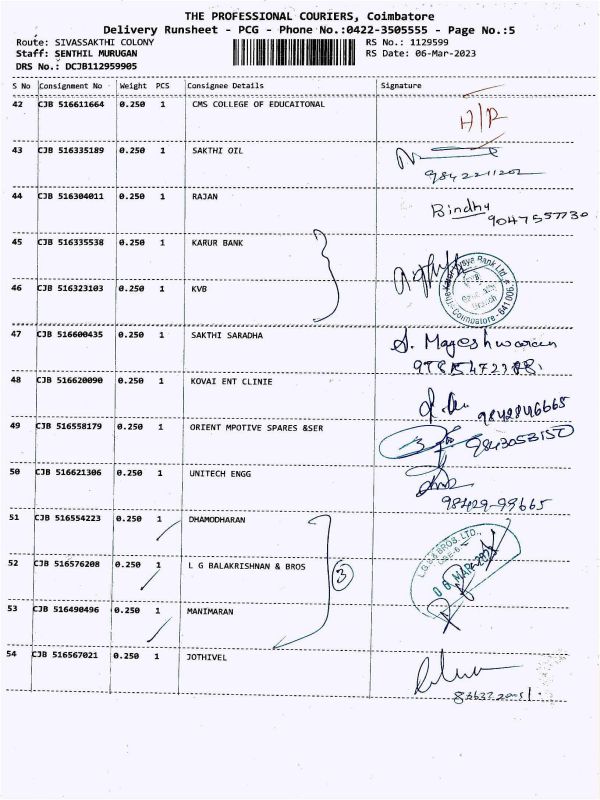 THE PROFESSIONAL COURIERS, Coimbatore
Delivery Runsheet - PCG - Phone No.:0422-3505555 - Page No.:5
Route: SIVASSAKTHI COLONY RS No.: 1129599
Staff: SENTHIL MURUGAN RS Date: 06-Mar-2023
DRS No.: DCJB112959905
S No Consignment No Weight PCS Consignee Details Signature
42 CJB 516611664 0.250 1 CMS COLLEGE OF EDUCAITONAL
43 CJB 516335189 0.250 1 SAKTHI OIL
44 CJB 516304011 0.250 1 RAJAN Bindhu
9047557730
45 CJB 516335538 0.250 1 KARUR BANK
46 CJB 516323103 0.250 1 KVB
47 CJB 516600435 0.250 1 SAKTHI SARADHA S. Mageshwaran
48 CJB 516620090 0.250 1 KOVAI ENT CLINIE
9842846665
49 CJB 516558179 0.250 1 ORIENT MPOTIVE SPARES &SER 9843053150
50 CJB 516621306 0.250 1 UNITECH ENGG
98429-99665
51 CJB 516554223 0.250 1 DHAMODHARAN
52 CJB 516576208 0.250 1 L G BALAKRISHNAN & BROS 3
53 CJB 516490496 0.250 1 MANIMARAN
54 CJB 516567021 0.250 1 JOTHIVEL